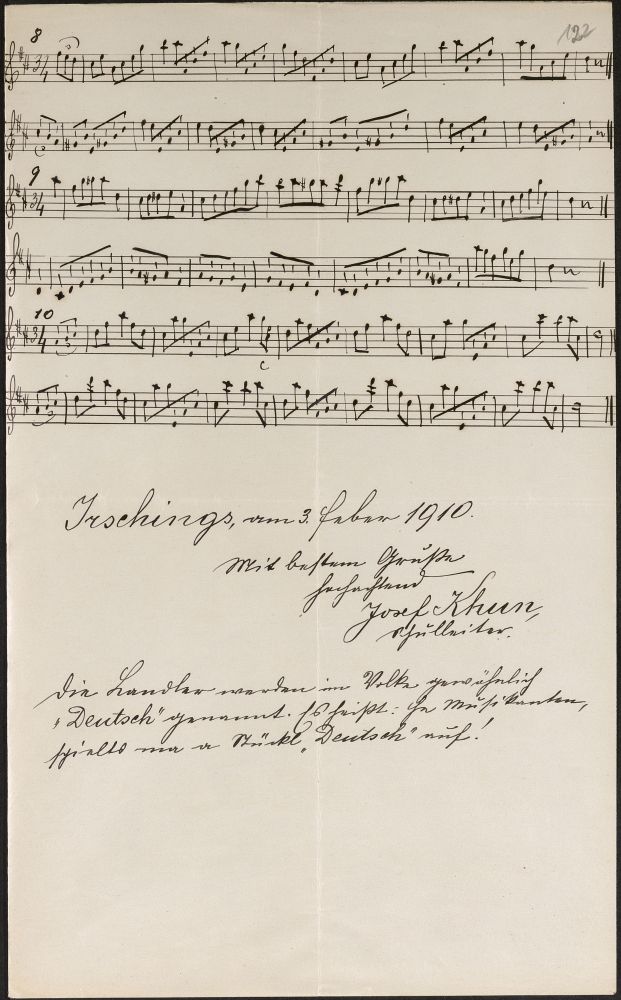 122
8
9
10
c
Irschings, am 3. Feber 1910.
Mit bestem Gruße
hochachtend
Josef Khun,
Schulleiter.
Die Landler werden im Volke gewöhnlich
„Deutsch" genannt. Es heißt: He Musikanten,
spielts ma a Stückl „Deutsch" auf!